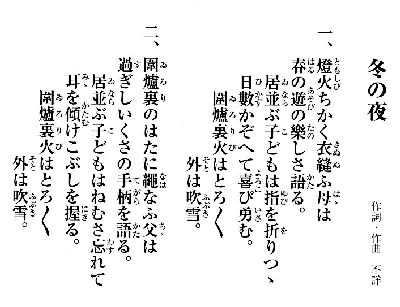 冬の夜
作詞・作曲 不詳
一、
燈火ちかく衣縫ふ母は
春の遊の樂しさ語る。
居並ぶ子どもは指を折りつゝ
日數かぞへて喜び勇む。
圍爐裏火はとろ〳〵
外は吹雪。
二、
圍爐裏のはたに繩なふ父は
過ぎしいくさの手柄を語る。
居並ぶ子どもはねむさ忘れて
耳を傾けこぶしを握る。
圍爐裏火はとろ〳〵
外は吹雪。